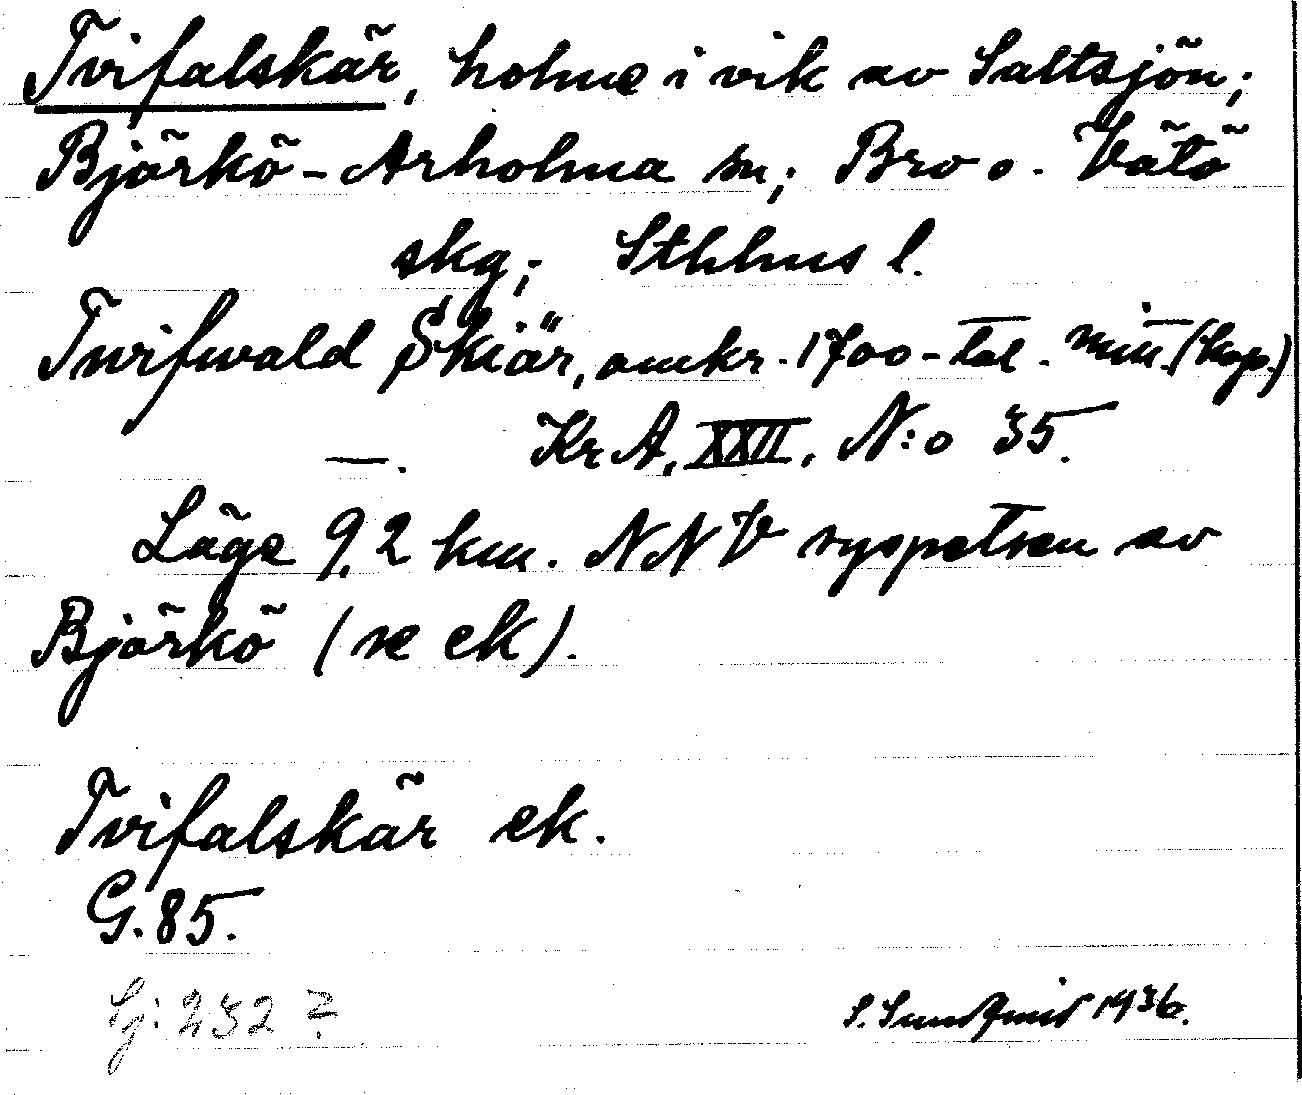 Tvifalskär, holme i vik av Saltsjön;
Björkö-Arholma sn; Bro o. Vätö
skg; Sthlms l.
Twifwald Skiär, omkr. 1700-tal. mitt. (kop.)
—. KrA, XXII, N:o 35.
Läge 9,2 km. NNV sydspetsen av
Björkö (se ek).
Tvifalskär ek.
G. 85.
Sj: 232 ?
S. Sundqvist 1936.